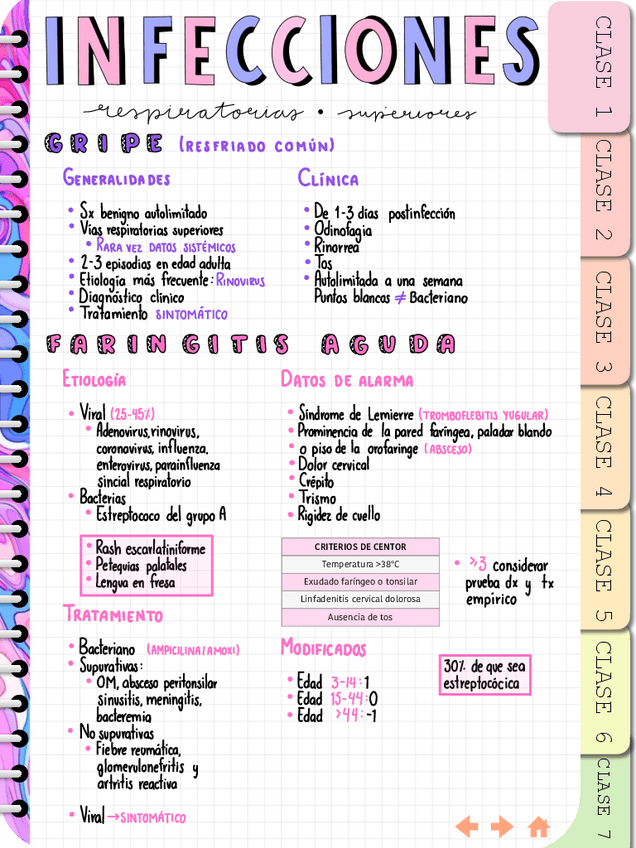 INFECCIONES
respiratorias • superiores
GRIPE (RESFRIADO COMÚN)
GENERALIDADES
• Sx benigno autolimitado
• Vías respiratorias superiores
• RARA VEZ DATOS SISTÉMICOS
• 2-3 episodios en edad adulta
• Etiología más frecuente: RINOVIRUS
• Diagnóstico clínico
• Tratamiento SINTOMÁTICO
CLÍNICA
• De 1-3 días postinfección
• Odinofagia
• Rinorrea
• Tos
• Autolimitada a una semana
Puntos blancos ≠ Bacteriano
FARINGITIS AGUDA
ETIOLOGÍA
• Viral (25-45%)
• Adenovirus, rinovirus,
coronavirus, influenza,
enterovirus, parainfluenza
sincial respiratorio
• Bacterias
• Estreptococo del grupo A
• Rash escarlatiniforme
• Petequias palatales
• Lengua en fresa
TRATAMIENTO
• Bacteriano (AMPICILINA/AMOXI)
• Supurativas:
• OM, absceso peritonsilar
sinusitis, meningitis,
bacteremia
• No supurativas
• Fiebre reumática,
glomerulonefritis y
artritis reactiva
• Viral → SINTOMÁTICO
DATOS DE ALARMA
• Síndrome de Lemierre (TROMBOFLEBITIS YUGULAR)
• Prominencia de la pared faríngea, paladar blando
• o piso de la orofaringe (ABSCESO)
• Dolor cervical
• Crépito
• Trismo
• Rigidez de cuello
CRITERIOS DE CENTOR
Temperatura >38°C
Exudado faríngeo o tonsilar
Linfadenitis cervical dolorosa
Ausencia de tos
• ≥3 considerar
prueba dx y tx
empírico
MODIFICADOS
• Edad 3-14: 1
• Edad 15-44: 0
• Edad >44: -1
30% de que sea
estreptocócica
CLASE 1
CLASE 2
CLASE 3
CLASE 4
CLASE 5
CLASE 6
CLASE 7